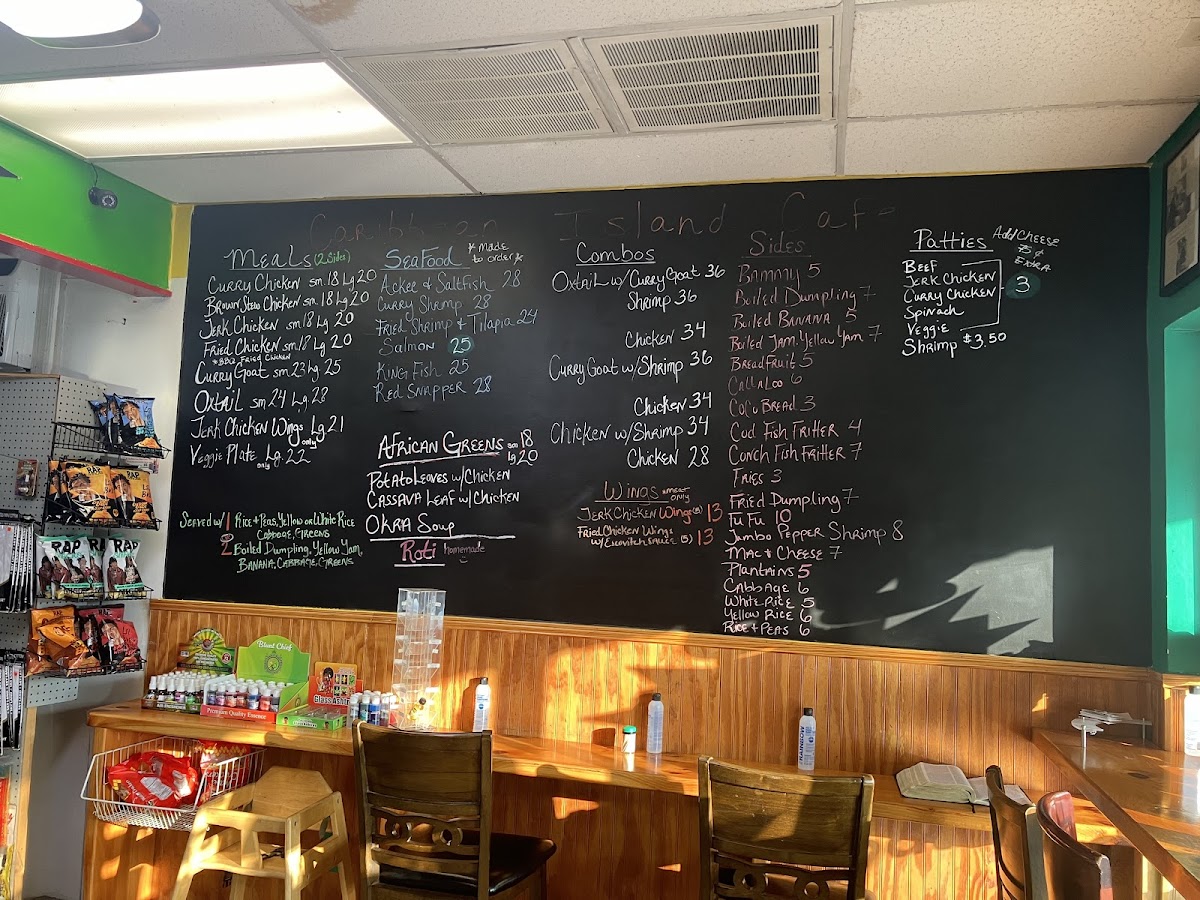 Caribb en Island Caf
Meals (2 Sides)
Curry Chicken sm. 18 Lg 20
Brown Stew Chicken sm. 18 Lg 20
Jerk Chicken sm 18 Lg 20
Fried Chicken sm. 18 Lg 20
*BBQ Fried Chicken
Curry Goat sm 23 Lg 25
Oxtail sm 24 Lg. 28
Jerk Chicken Wings Lg 21
only
Veggie Plate Lg. 22
only
Served w/ 1 Rice + Peas, Yellow or White Rice
Cabbage, Greens
2 Boiled Dumpling, Yellow Yam,
Banana, Cabbage, Greens
Seafood *made
to order*
Ackee & Saltfish 28
Curry Shrimp 28
Fried Shrimp & Tilapia 24
Salmon 25
King Fish 25
Red Snapper 28
African Greens sm 18
Lg 20
Potato Leaves w/ Chicken
Cassava Leaf w/ Chicken
Okra Soup
Roti homemade
Combos
Oxtail w/ Curry Goat 36
Shrimp 36
Chicken 34
Curry Goat w/ Shrimp 36
Chicken 34
Chicken w/ Shrimp 34
Chicken 28
Wings *meat
only
Jerk Chicken Wings (5) 13
Fried Chicken Wings
w/ Escovitch Sauce (5) 13
Sides
Bammy 5
Boiled Dumpling 7
Boiled Banana 5
Boiled Yam. Yellow Yam 7
Breadfruit 5
Callaloo 6
CoCo Bread 3
Cod Fish Fritter 4
Conch Fish Fritter 7
Fries 3
Fried Dumpling 7
FuFu 10
Jumbo Pepper Shrimp 8
Mac & Cheese 7
Plantains 5
Cabbage 6
White Rice 5
Yellow Rice 6
Rice + Peas 6
Patties Add Cheese
75¢
Extra
Beef
Jerk Chicken
Curry Chicken 3
Spinach
Veggie
Shrimp $3.50
RAP
RAP
RAP
RAP
Blunt Chief
Premium Quality Essence